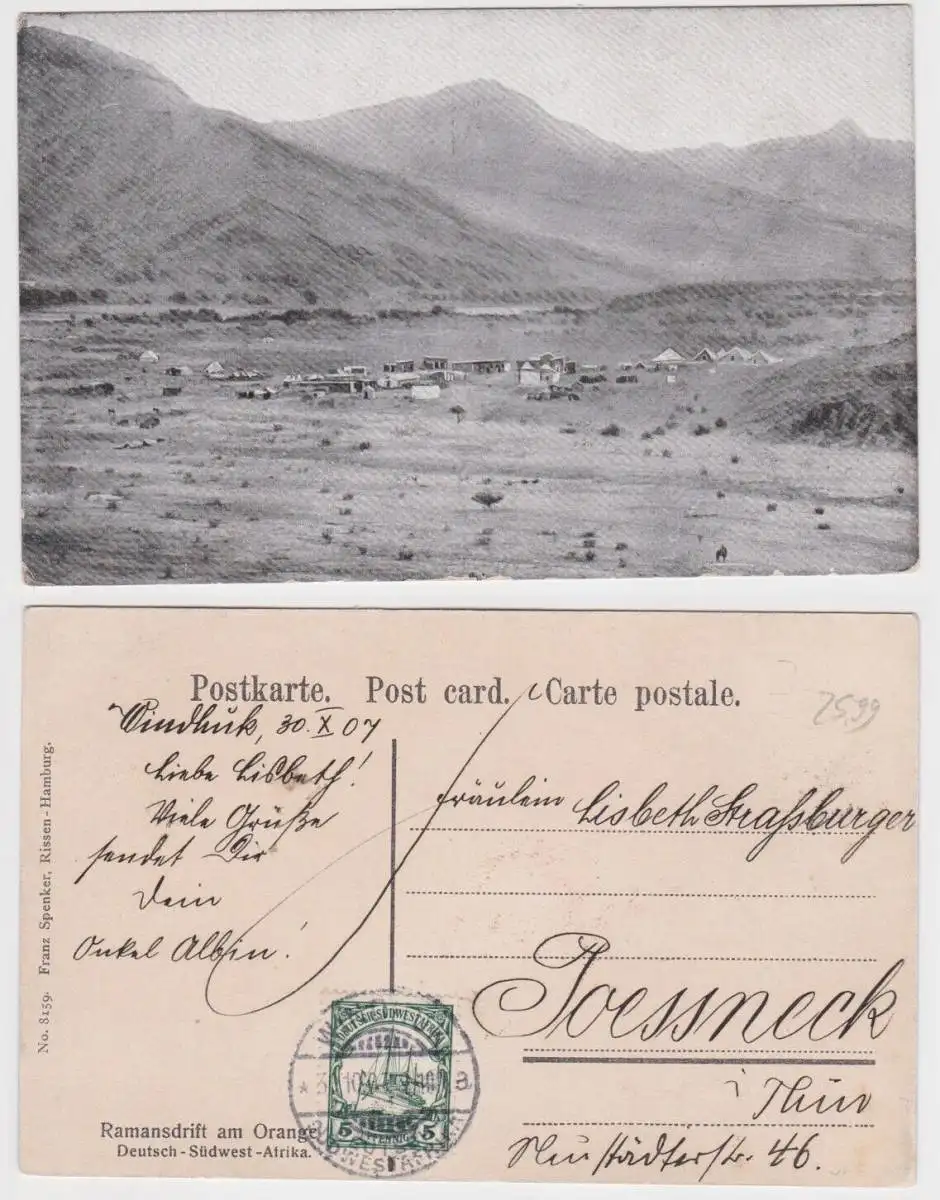 Postkarte. Post card. Carte postale.
25,99
Windhuk, 30. X 07
Liebe Lisbeth!
Viele Grüße
sendet Dir
Dein
Onkel Albin!
Fräulein Lisbeth Straßburger
Poessneck
i Thür
Neustädterstr. 46.
No. 8159. Franz Spenker, Rissen-Hamburg.
DEUTSCH-SÜDWESTAFRIKA
5 PFENNIG 5
a
Ramansdrift am Orange
Deutsch-Südwest-Afrika.